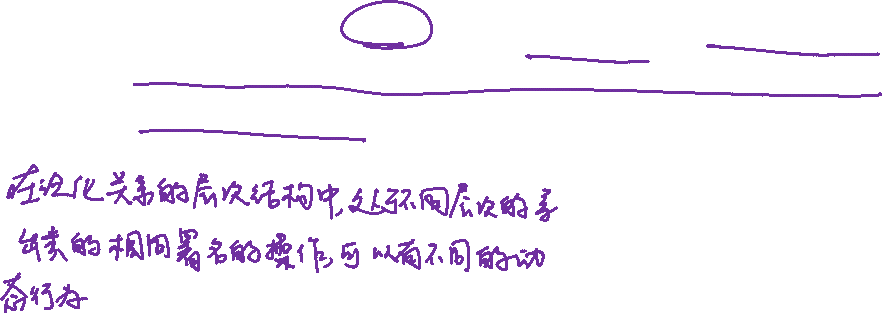 在泛化关系的层次结构中,处于不同层次的
类的相同署名的操作,可以有不同的动
态行为